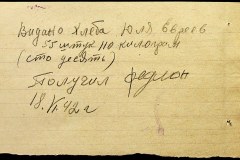 Видано Хлеба Юлб Евреев
55 штук 110 килограм
(сто десять)
Получил
18. VI. 42 г